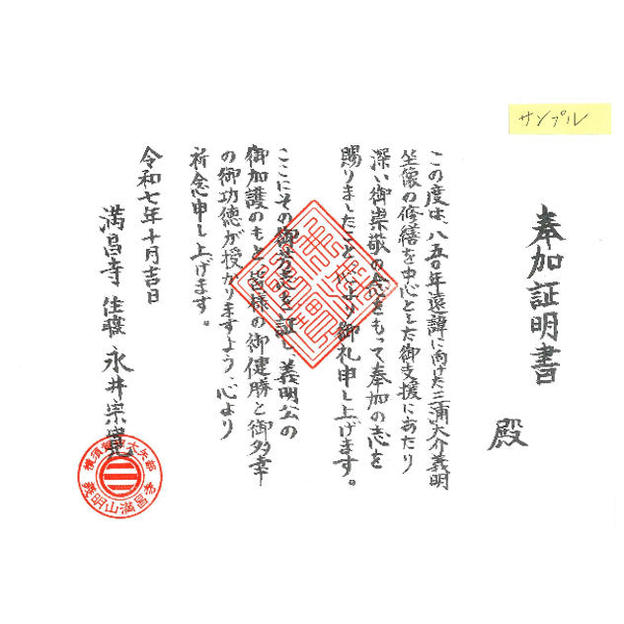 サンプル
奉加証明書
殿
この度は、八五〇年遠諱に向けた三浦大介義明
坐像の修繕を中心とした御支援にあたり
深い御崇敬の念をもって奉加の志を
賜りましたこと、心より御礼申し上げます。
ここにその御芳志を証し、義明公の
御加護のもと皆様の御健勝と御多幸
の御功徳が授かりますよう、心より
祈念申し上げます。
令和七年十月吉日
満昌寺 住職 永井宗寛
横須賀市大矢部
義明山満昌寺